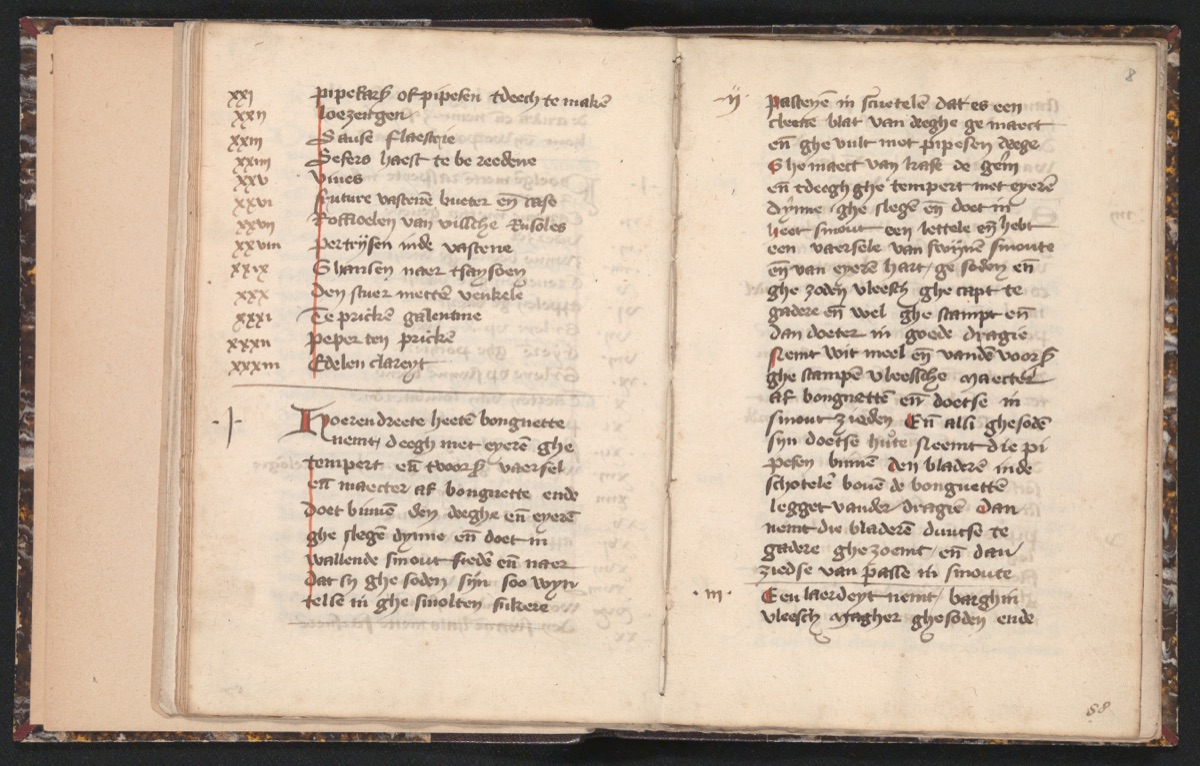 xxj pipekarß of pipeken tdeech te makē
xxij loezengen
xxiij Sause flaestrie
xxiiij Sekers haest te bereedene
xxv vives
xxvj Future vastenē bueter eñ case
xxvij Roffioelen van vissche Rusoles
xxviij pertrijsen inde vastene
xxix Ghansen naer tsaysoen
xxx Den stuer mettē venkele
xxxj Te prickē galentine
xxxij peper ten prickē
xxxiij Edelen clareyt
·j· Hoerendreete heetē bonguette
nemt deegh met eyerē ghe
tempert eñ tvoorß vaersel
eñ maecter af bonguette ende
doet binnē den deeghe eñ eyerē
ghe slegē dynne eñ doet in
wallende smout siedē eñ naer
dat sy ghe soden syn soo wyn
telse in ghe smolten sukere
8
·ij· pasteyē in scuetelē dat es een
cleene blat van deeghe ge maect
eñ ghe vult met pipeken deege
Ghe maect van kase de gem̄
eñ tdeegh ghe tempert met eyerē
dynne ghe slegē eñ doet in
heet smout een lettele eñ hebt
een vaersele van swynē smoute
eñ van eyerē hart ge soden eñ
ghe zoden vleesch ghe capt te
gadere eñ wel ghe stampt eñ
dan doeter in goede dragie
Nemt wit meel eñ vande voorß
ghe stampē vleessche maecter
af bonguettē eñ doetse in
smout zieden Eñ alsi ghesodē
syn doetse hute Neemt die pi
peken binnē den bladerē inde
schotelē bouē de bonguettē
legget vander dragiē Dan
nemt die bladerē duutse te
gadere ghezoemt eñ dan
ziedse van passe in smoute
·iij· Een laerdeyt nemt barghin
vleesch magher ghesoden ende
88